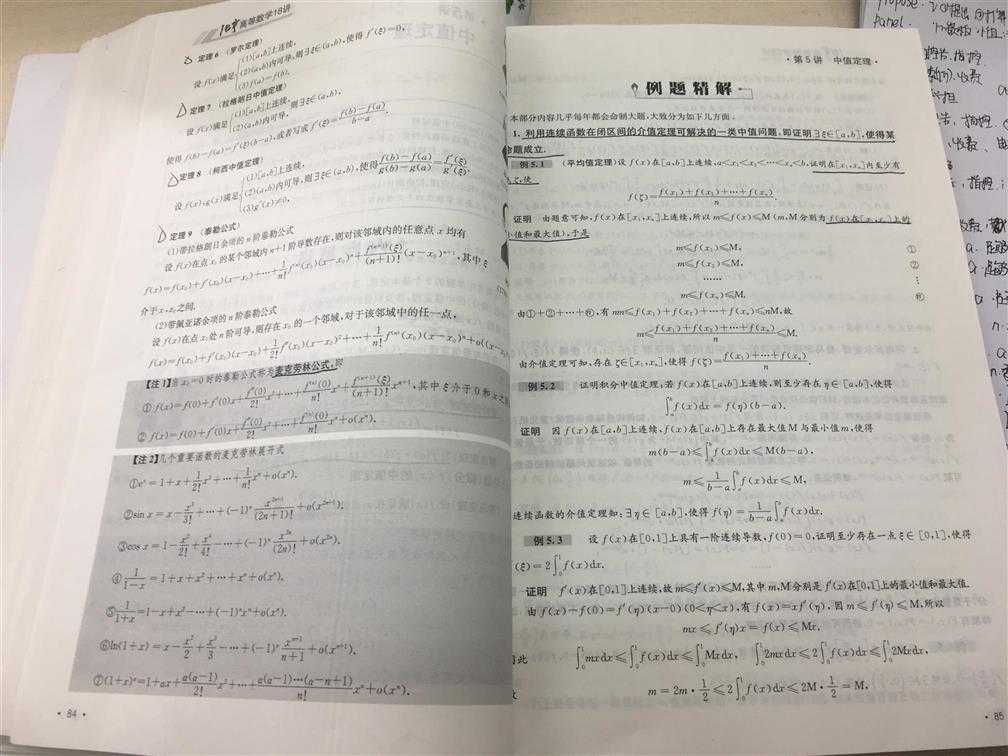 高等数学18讲
定理6 (罗尔定理)
设 f(x)满足 (1)[a,b]上连续,
(2)(a,b)内可导,则∃ξ∈(a,b),使得 f′(ξ)=0.
(3)f(a)=f(b),
定理7 (拉格朗日中值定理)
设 f(x)满足 (1)[a,b]上连续,
(2)(a,b)内可导, 则∃ξ∈(a,b),
使得 f(b)-f(a)=f′(ξ)(b-a),或者写成 f′(ξ)=\frac{f(b)-f(a)}{b-a}.
定理8 (柯西中值定理)
设 f(x),g(x)满足 (1)[a,b]上连续,
(2)(a,b)内可导,则∃ξ∈(a,b),使得\frac{f(b)-f(a)}{g(b)-g(a)}=\frac{f′(ξ)}{g′(ξ)}.
(3)g′(x)≠0,
定理9 (泰勒公式)
(1)带拉格朗日余项的n阶泰勒公式
设 f(x)在点 x₀ 的某个邻域内 n+1 阶导数存在,则对该邻域内的任意点 x 均有
f(x)=f(x₀)+f′(x₀)(x-x₀)+…+\frac{1}{n!}f⁽ⁿ⁾(x₀)(x-x₀)ⁿ+\frac{f⁽ⁿ⁺¹⁾(ξ)}{(n+1)!}(x-x₀)ⁿ⁺¹,其中 ξ
介于 x,x₀ 之间.
(2)带佩亚诺余项的 n 阶泰勒公式
设 f(x)在点 x₀ 处 n 阶可导,则存在 x₀ 的一个邻域,对于该邻域中的任一点,
f(x)=f(x₀)+f′(x₀)(x-x₀)+\frac{1}{2!}f″(x₀)(x-x₀)²+…+\frac{1}{n!}f⁽ⁿ⁾(x₀)(x-x₀)ⁿ+o((x-x₀)
【注1】当 x₀=0 时的泰勒公式称为麦克劳林公式,即
① f(x)=f(0)+f′(0)x+\frac{f″(0)}{2!}x²+…+\frac{f⁽ⁿ⁾(0)}{n!}xⁿ+\frac{f⁽ⁿ⁺¹⁾(ξ)}{(n+1)!}xⁿ⁺¹,其中 ξ 介于 0 和 x 之
② f(x)=f(0)+f′(0)x+\frac{f″(0)}{2!}x²+…+\frac{f⁽ⁿ⁾(0)}{n!}xⁿ+o(xⁿ).
【注2】几个重要函数的麦克劳林展开式
①eˣ=1+x+\frac{1}{2!}x²+…+\frac{1}{n!}xⁿ+o(xⁿ).
②sin x=x-\frac{x³}{3!}+…+(-1)ⁿ\frac{x²ⁿ⁺¹}{(2n+1)!}+o(x²ⁿ⁺¹).
③cos x=1-\frac{x²}{2!}+\frac{x⁴}{4!}-…+(-1)ⁿ\frac{x²ⁿ}{(2n)!}+o(x²ⁿ).
④\frac{1}{1-x}=1+x+x²+…+xⁿ+o(xⁿ).
⑤\frac{1}{1+x}=1-x+x²-…+(-1)ⁿxⁿ+o(xⁿ).
⑥ln(1+x)=x-\frac{x²}{2}+\frac{x³}{3}-…+(-1)ⁿ\frac{xⁿ⁺¹}{n+1}+o(xⁿ⁺¹).
⑦(1+x)ᵃ=1+ax+\frac{a(a-1)}{2!}x²+…+\frac{a(a-1)…(a-n+1)}{n!}xⁿ+o(xⁿ).
· 84 ·
· 第5讲 中值定理 ·
例题精解
本部分内容几乎每年都会命制大题,大致分为如下几方面.
1. 利用连续函数在闭区间的介值定理可解决的一类中值问题,即证明∃ξ∈[a,b],使得某
命题成立.
例5.1 (平均值定理)设 f(x)在[a,b]上连续,a<x₁<x₂<…<xₙ<b,证明在[x₁,xₙ]内至少有
ζ,使
f(ζ)=\frac{f(x₁)+f(x₂)+…+f(xₙ)}{n}.
证明 由题意可知,f(x)在[x₁,xₙ]上连续,所以 m≤f(x)≤M (m,M分别为 f(x)在[x₁,xₙ]上的
小值和最大值),于是
m≤f(x₁)≤M, ①
m≤f(x₂)≤M, ②
…… ⋮
m≤f(xₙ)≤M. ⓝ
由①+②+…+ⓝ,有 nm≤f(x₁)+f(x₂)+…+f(xₙ)≤nM,故
m≤\frac{f(x₁)+f(x₂)+…+f(xₙ)}{n}≤M.
由介值定理可知,存在 ζ∈[x₁,xₙ],使得 f(ζ)=\frac{f(x₁)+…+f(xₙ)}{n}.
例5.2 证明积分中值定理:若 f(x)在[a,b]上连续,则至少存在 η∈[a,b],使得
∫ₐᵇf(x)dx=f(η)(b-a).
证明 因 f(x)在[a,b]上连续,f(x)在[a,b]上存在最大值 M 与最小值 m,使得
m(b-a)≤∫ₐᵇf(x)dx≤M(b-a),
m≤\frac{1}{b-a}∫ₐᵇf(x)dx≤M,
连续函数的介值定理知:∃η∈[a,b],使得 f(η)=\frac{1}{b-a}∫ₐᵇf(x)dx.
例5.3 设 f(x)在[0,1]上具有一阶连续导数,f(0)=0,证明至少存在一点 ξ∈[0,1],使得
(ξ)=2∫₀¹f(x)dx.
证明 f′(x)在[0,1]上连续,故 m≤f′(x)≤M,其中 m,M分别是 f′(x)在[0,1]上的最小值和最大值.
由 f(x)-f(0)=f′(η)(x-0)(0<η<x),有 f(x)=xf′(η),因 m≤f′(η)≤M,所以
mx≤f′(η)x=f(x)≤Mx,
因此 ∫₀¹mxdx≤∫₀¹f(x)dx≤∫₀¹Mxdx, ∫₀¹2mxdx≤2∫₀¹f(x)dx≤∫₀¹2Mxdx,
m=2m·\frac{1}{2}≤2∫₀¹f(x)dx≤2M·\frac{1}{2}=M,
· 85
propose
panel.